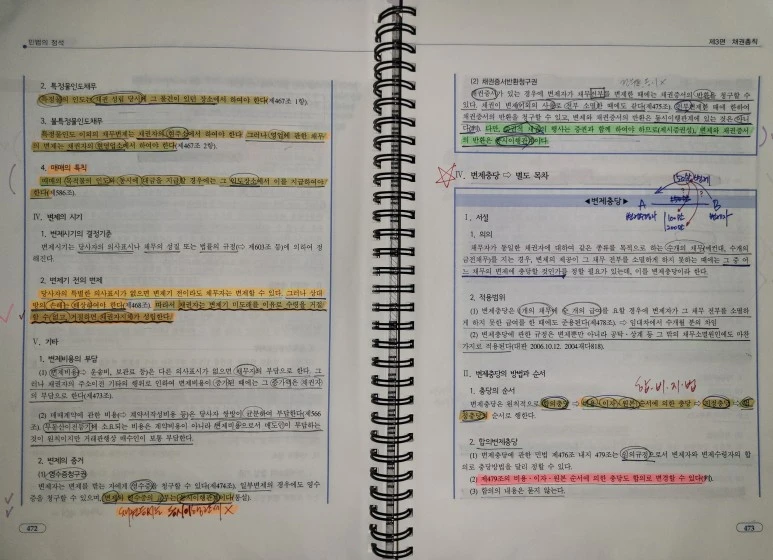 민법의 정석
2. 특정물인도채무
특정물의 인도는 채권 성립 당시에 그 물건이 있던 장소에서 하여야 한다(제467조 1항).
3. 불특정물인도채무
특정물인도 이외의 채무변제는 채권자의 현주소에서 하여야 한다. 그러나 영업에 관한 채무
의 변제는 채권자의 현영업소에서 하여야 한다(제467조 2항).
4. 매매의 특칙
매매의 목적물의 인도와 동시에 대금을 지급할 경우에는 그 인도장소에서 이를 지급하여야
한다(제586조).
IV. 변제의 시기
1. 변제시기의 결정기준
변제시기는 당사자의 의사표시나 채무의 성질 또는 법률의 규정(⇨ 제603조 등)에 의하여 정
해진다.
2. 변제기 전의 변제
당사자의 특별한 의사표시가 없으면 변제기 전이라도 채무자는 변제할 수 있다. 그러나 상대
방의 손해는 배상하여야 한다(제468조). 따라서 채권자는 변제기 미도래를 이유로 수령을 거절
할 수 없고, 거절하면 채권자지체가 성립한다.
V. 기타
1. 변제비용의 부담
(1) 변제비용(⇨ 운송비, 보관료 등)은 다른 의사표시가 없으면 채무자의 부담으로 한다. 그
러나 채권자의 주소이전 기타의 행위로 인하여 변제비용이 증가된 때에는 그 증가액은 채권자
의 부담으로 한다(제473조).
(2) 매매계약에 관한 비용(⇨ 계약서작성비용 등)은 당사자 쌍방이 균분하여 부담한다(제566
조). 부동산이전등기에 소요되는 비용은 계약비용이 아니라 변제비용으로서 매도인이 부담하는
것이 원칙이지만 거래관행상 매수인이 보통 부담한다.
2. 변제의 증거
(1) 영수증청구권
변제자는 변제를 받는 자에게 영수증을 청구할 수 있다(제474조). 일부변제의 경우에도 영수
증을 청구할 수 있으며, 변제와 영수증의 교부는 동시이행관계이다(통설).
472
제3편 채권총칙
(2) 채권증서반환청구권
채권증서가 있는 경우에 변제자가 채무전부를 변제한 때에는 채권증서의 반환을 청구할 수
있다. 채권이 변제이외의 사유로 전부 소멸한 때에도 같다(제475조). 전부변제한 때에 한하여
채권증서의 반환을 청구할 수 있고, 변제와 채권증서의 반환은 동시이행관계에 있는 것은 아니
다(判). 다만, 증권적 채권의 행사는 증권과 함께 하여야 하므로(제시증권성), 변제와 채권증서
의 반환은 동시이행관계이다.
IV. 변제충당 ⇨ 별도 목차
◀변제충당▶
A
B
I. 서설
1. 의의
채무자가 동일한 채권자에 대하여 같은 종류를 목적으로 하는 수개의 채무(예컨대, 수개의
금전채무)를 지는 경우, 변제의 제공이 그 채무 전부를 소멸하게 하지 못하는 때에는 그 중 어
느 채무의 변제에 충당할 것인가를 정할 필요가 있는데, 이를 변제충당이라 한다.
2. 적용범위
(1) 변제충당은 1개의 채무에 수 개의 급여를 요할 경우에 변제자가 그 채무 전부를 소멸하
게 하지 못한 급여를 한 때에도 준용된다(제478조). ⇨ 임대차에서 수개월 분의 차임
(2) 변제충당에 관한 규정은 변제뿐만 아니라 공탁·상계 등 그 밖의 채무소멸원인에도 마찬
가지로 적용된다(대판 2006.10.12. 2004재다818).
II. 변제충당의 방법과 순서
합·비·지·법
1. 충당의 순서
변제충당은 원칙적으로 합의충당 ⇨ 비용/이자/원본 순서에 의한 충당 ⇨ 지정충당 ⇨ 법
정충당의 순서로 행한다.
2. 합의변제충당
(1) 변제충당에 관한 민법 제476조 내지 479조는 임의규정으로서 변제자와 변제수령자의 합
의로 충당방법을 달리 정할 수 있다.
(2) 제479조의 비용·이자·원본 순서에 의한 충당도 합의로 변경할 수 있다(判).
(3) 합의의 내용은 묻지 않는다.
473